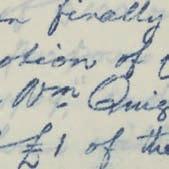 n finally
otion of
Wm Quig
£1 of the